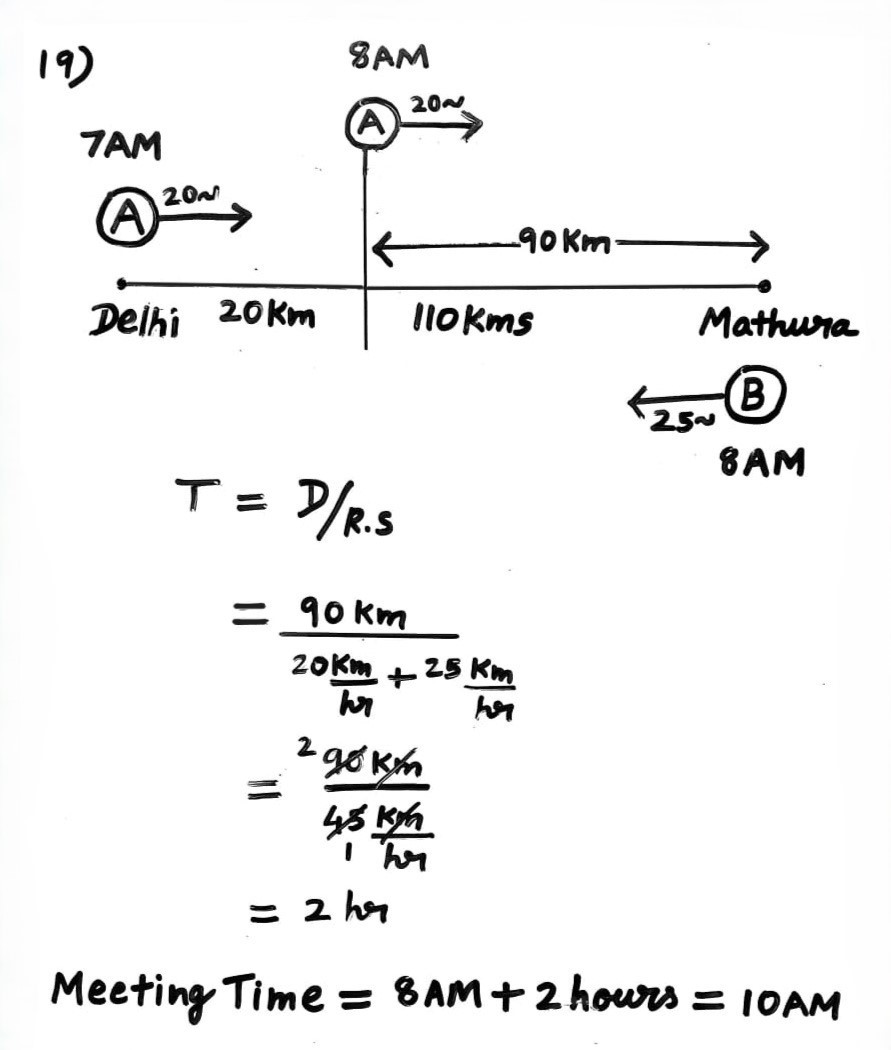 19)
8AM
A 20~
7AM
A 20~
90 Km
Delhi 20Km 110Kms Mathura
B
25~
8AM
T = D/R.S
= 90 Km
20 Km/hr + 25 Km/hr
= 2 90 Km
45 Km/hr
1
= 2 hr
Meeting Time = 8AM + 2 hours = 10AM